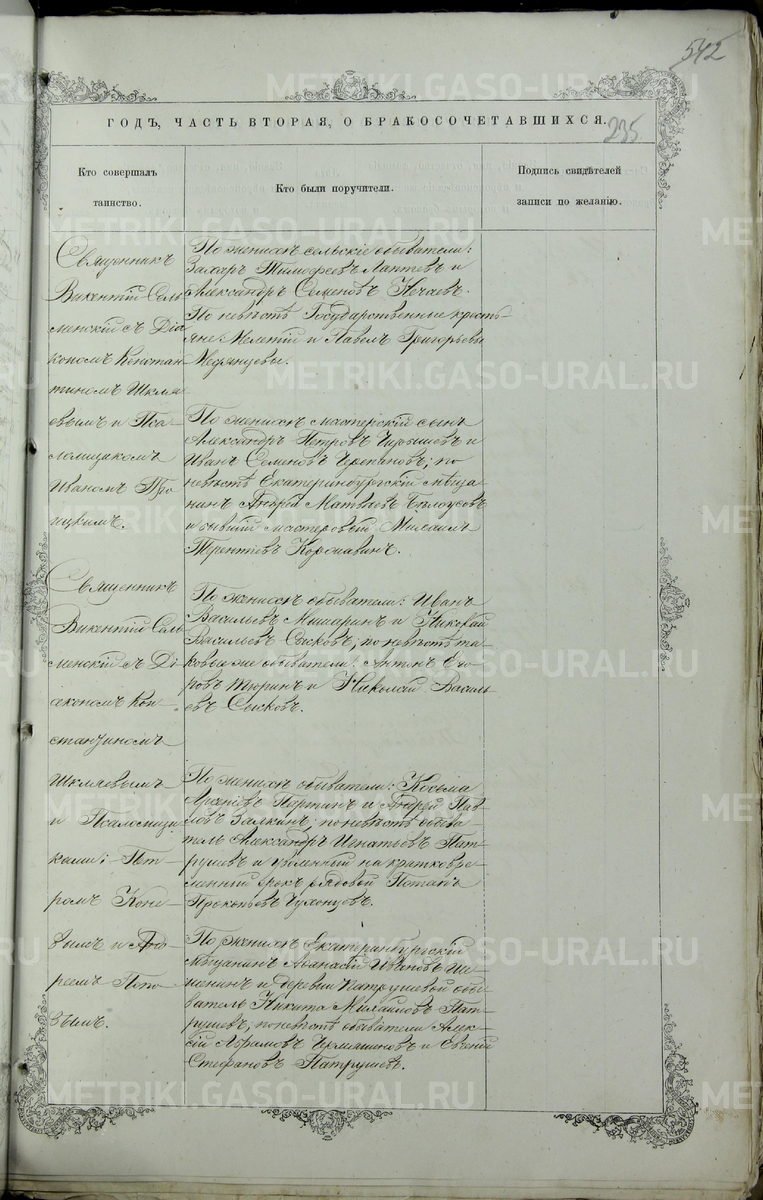 542
ГОДЪ, ЧАСТЬ ВТОРАЯ, О БРАКОСОЧЕТАВШИХСЯ.
235
Кто совершалъ
таинство.
Кто были поручители.
Подпись свидѣтелей
записи по желанію.
Священникъ
Викентій Сель-
менскій съ Діа
кономъ Констан
тиномъ Шкля
евымъ и Пса-
ломщикомъ
Иваномъ Тро
ицкимъ.
По женихѣ сельскіе обыватели:
Захаръ Тимофеевъ Лаптевъ и
Александръ Семеновъ Нечаевъ.
По невѣстѣ Государственные кресть-
яне: и Павелъ Григорьевы
Медянцевы.
По женихѣ мастерскій сынъ
Александръ Петровъ и
Иванъ Семеновъ Черепановъ; по
невѣстѣ Екатеринбургскій мѣща
нинъ Андрей Матвѣевъ Бѣлоусовъ
и бывшій мастеровой Михаилъ
Терентьевъ
Священникъ
Викентій Сель
менскій съ Ді
акономъ Кон
стантиномъ
Шкляевымъ
и Псаломщи
ками: Пет-
ромъ Коне-
вымъ и Анд-
реемъ Попо
вымъ.
По женихѣ обыватели: Иванъ
Васильевъ Мишаринъ и Николай
Васильевъ Сысковъ; по невѣстѣ та
ковые же обыватели: Антонъ Его-
ровъ Тюринъ и Николай Василь
евъ Сысковъ.
По женихѣ обыватели: Косьма
Арсеніевъ Портнинъ и Андрей Пав
ловъ Залкинъ; по невѣстѣ обыва
тель Александръ Игнатьевъ Пат-
рушевъ и уволенный на кратковре-
менный срокъ рядовой Потапъ
Прокопьевъ Чухонцевъ.
По женихѣ Екатеринбургскій
мѣщанинъ Аѳанасій Ивановъ Ше
менинъ и деревни Патрушевой обы
ватель Никита Михаиловъ Пат-
рушевъ; по невѣстѣ обыватели Алек-
сій Абрамовъ и Евгеній
Стефановъ Патрушевъ.
METRIKI.GASO-URAL.RU